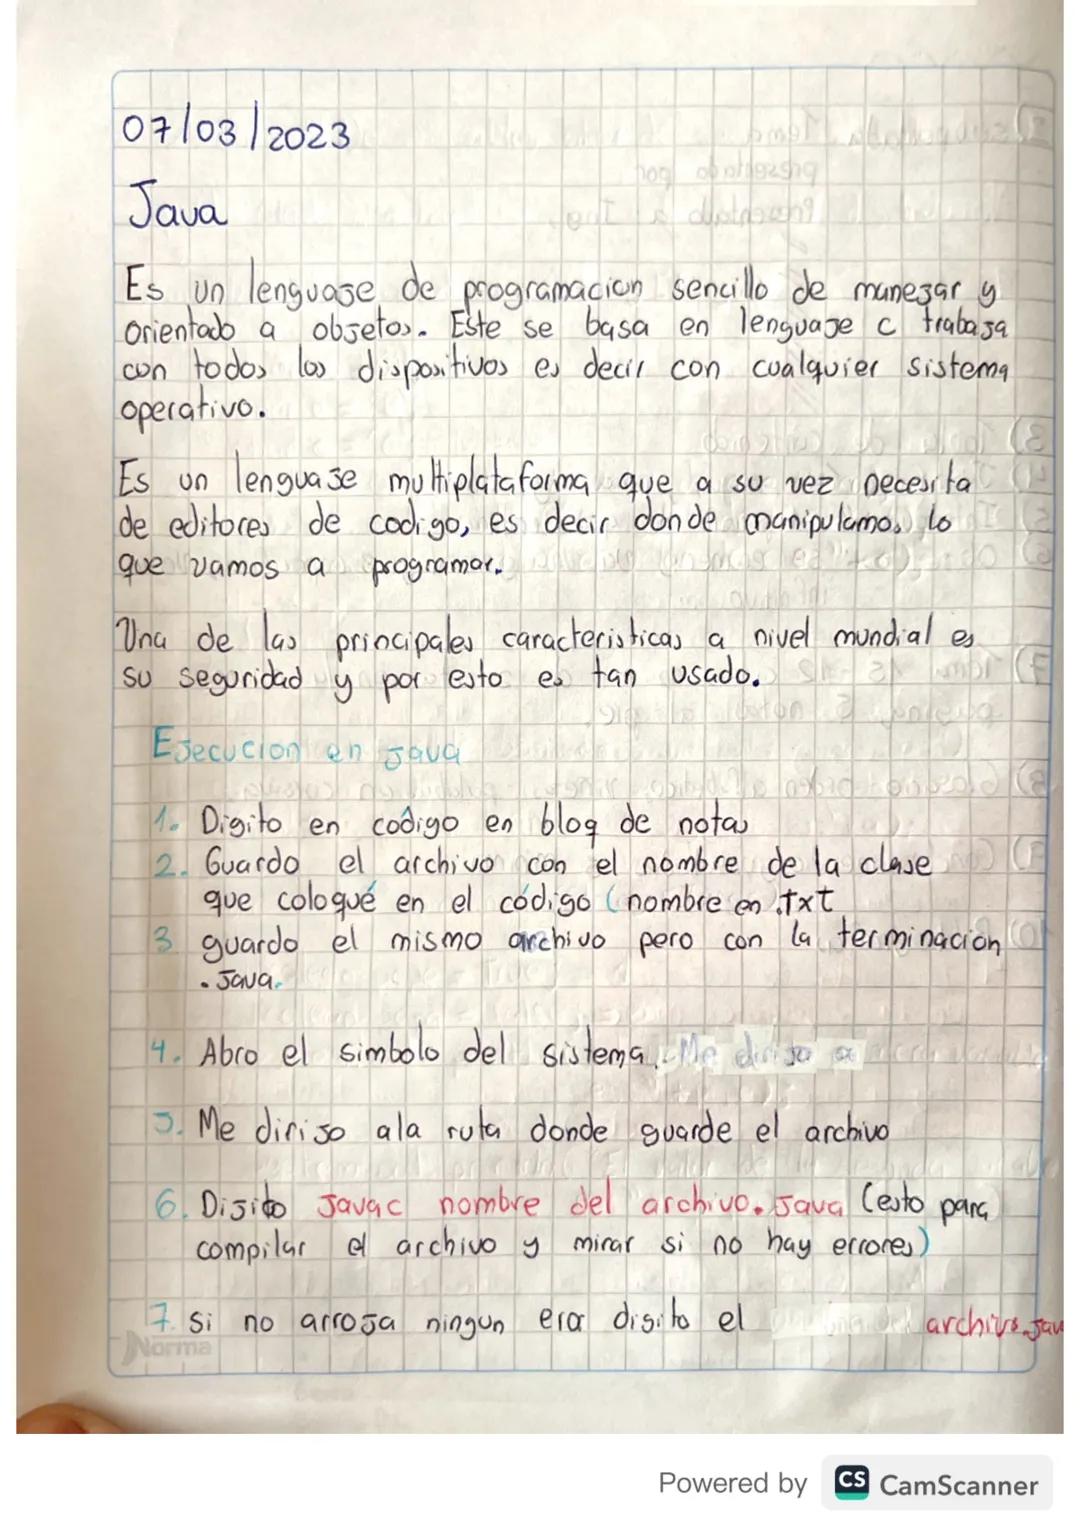 07/03/2023
Java
Es un lenguaje de programacion sencillo de manejar y
orientado a objetos. Este se basa en lenguaje c trabaja
con todos los dispositivos es decir con cualquier sistema
operativo.
Es un lenguaje multiplataforma que a su vez necesita
de editores de codigo, es decir donde manipulamos lo
que vamos a programar.
Una de las principales caracteristicas a nivel mundial es
su seguridad y por esto es tan usado.
Ejecucion en java
1. Digito en codigo en bloq de notas
2. Guardo el archivo con el nombre de la clase
que coloqué en el código (nombre en .txt
3 guardo el mismo archivo pero con la terminacion
.Java.
4. Abro el simbolo del sistema. Me dirijo a
5. Me dirijo ala ruta donde guarde el archivo
6. Dijito Javac nombre del archivo.Java (esto para
compilar el archivo y mirar si no hay errores)
7. si no arroja ningun eror dijito el archivo.jav
Norma
Powered by CS CamScanner